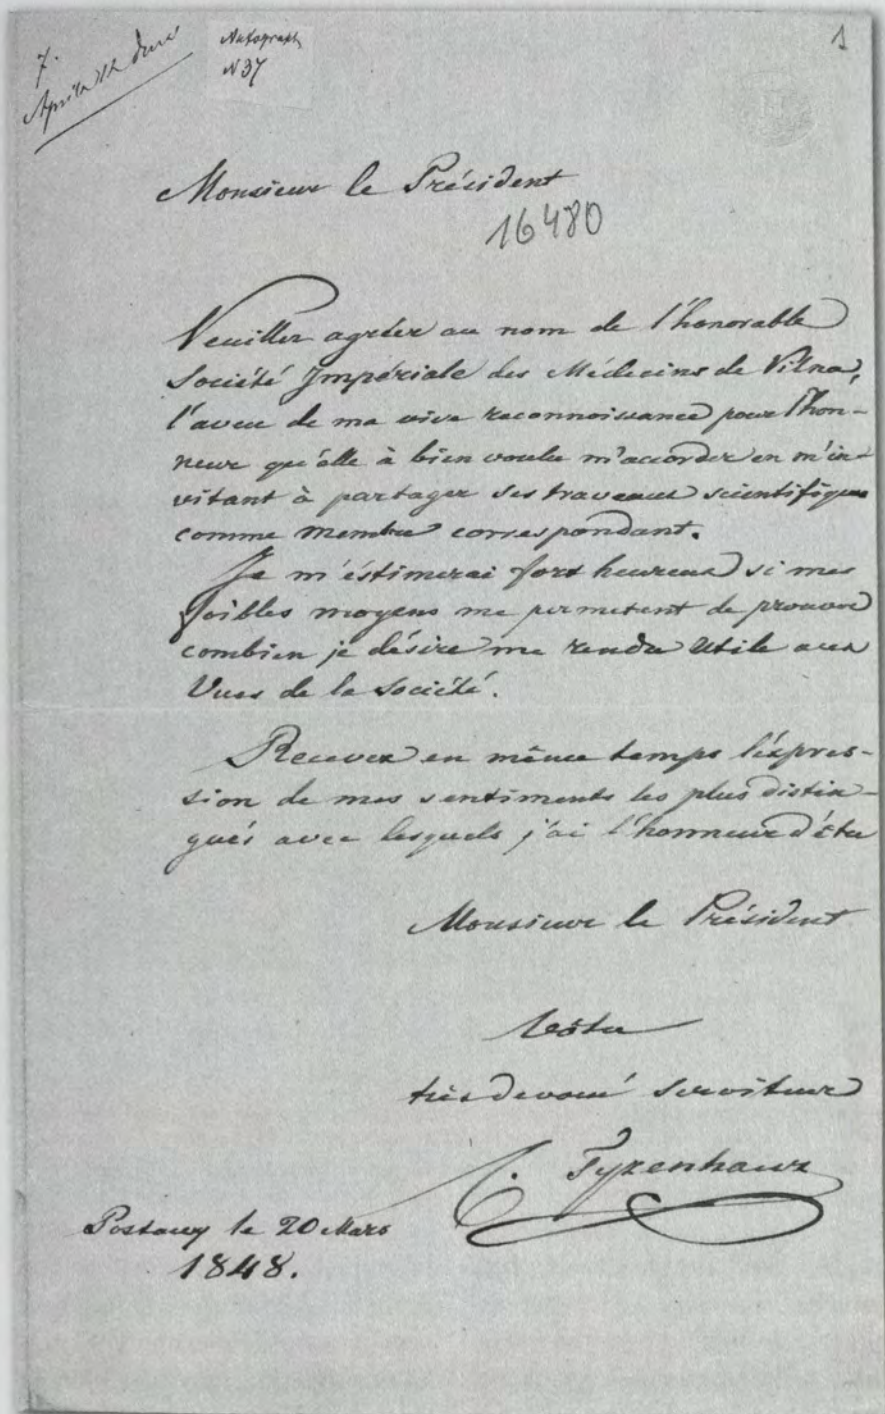 7.
Aprila 12 dnia
Autograph
N 37
1
Monsieur le Président
16480
Veuillez agréer au nom de l'honorable
Société Impériale des Médecins de Vilna,
l'aveu de ma vive reconnoissance pour l'hon-
neur qu'elle à bien voulu m'accorder en m'in-
vitant à partager ses travaux scientifiques
comme membre correspondant.
Je m'éstimerai fort heureux si mes
foibles moyens me permetent de prouver
combien je désire me rendre utile aux
Vues de la Société.
Recevez en même temps l'éxpres-
sion de mes sentiments les plus distin-
gués avec lesquels j'ai l'honneur d'être
Monsieur le Président
Vôtre
très devoué serviteur
C. Tyzenhauz
Postawy le 20 Mars
1848.